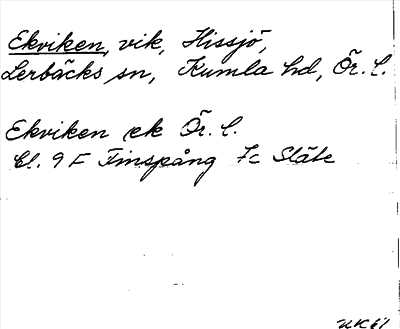 Ekviken, vik, Hissjö,
Lerbäcks sn, Kumla hd, Ör. l.
Ekviken ek Ör. l.
bl. 9 F Finspång 7c Släte
UK 61